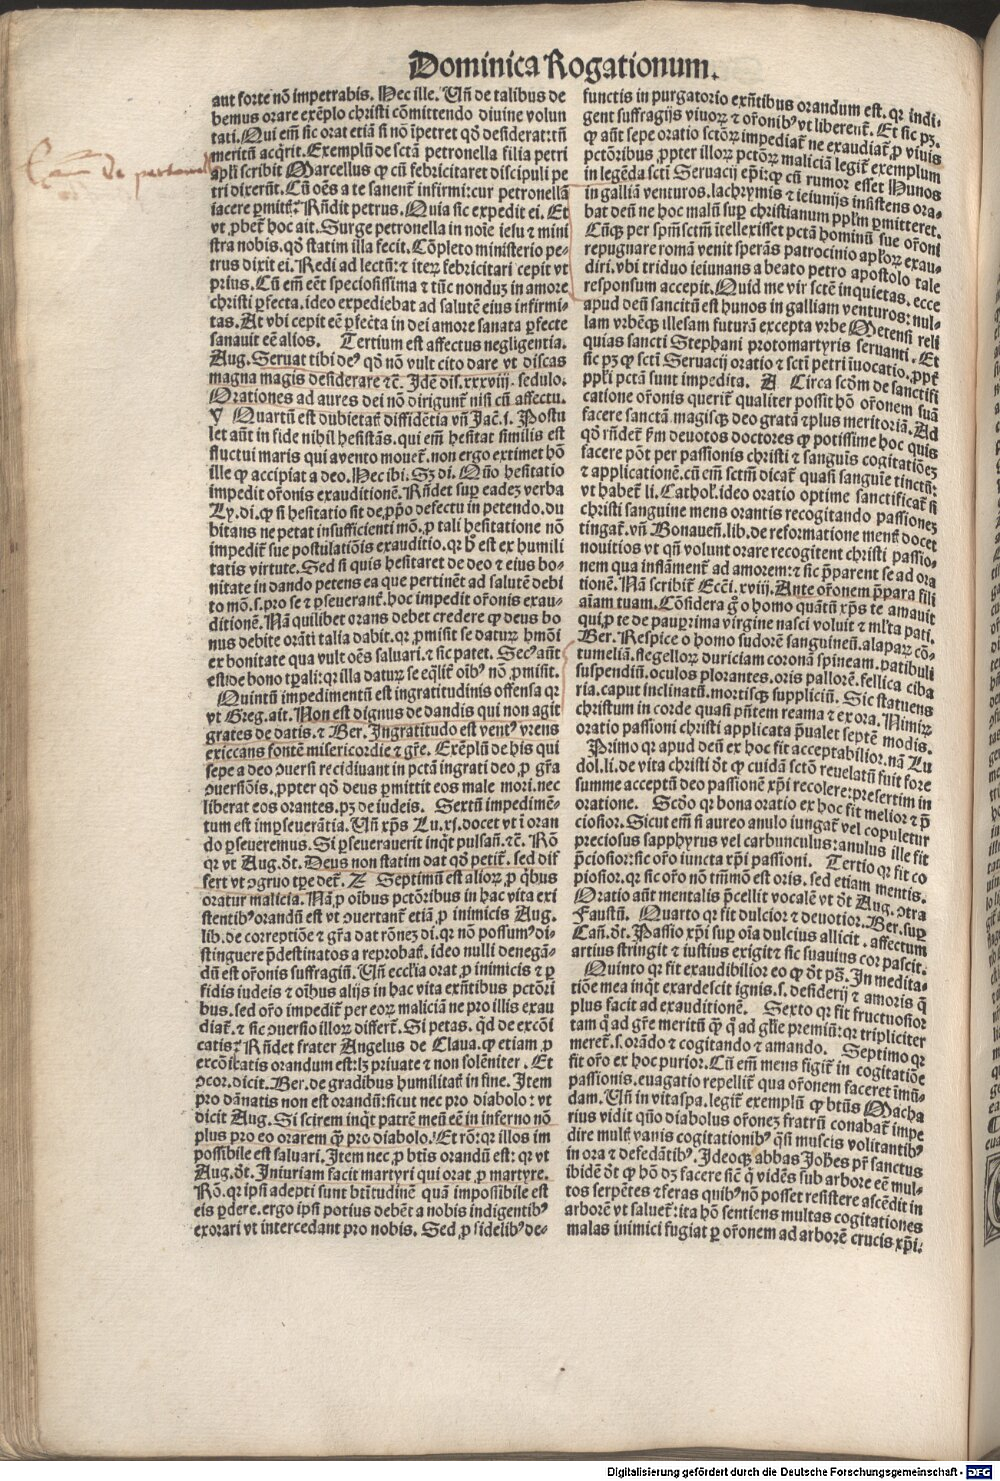 Dominica Rogationum.
aut forte nõ impetrabis. Hec ille. Uñ de talibus de
bemus orare exẽplo christi cõmittendo diuine volun
tati. Qui em̃ sic orat etiã si nõ ĩpetret qď desiderat: tñ
meritũ acq̃rit. Exemplũ de sctã petronella filia petri
apľi scribit Marcellus ꝙ cũ febricitaret discipuli pe
tri dixerũt. Cũ oẽs a te sanent̃ infirmi: cur petronellã
iacere ꝑmittis? Rñdit petrus. Quia sic expedit ei. Et
vt ꝓbet̃ hoc ait. Surge petronella in noĩe iesu et mini
stra nobis. qď statim illa fecit. Cõpleto ministerio pe-
trus dixit ei. Redi ad lectũ: ⁊ iteꝝ febricitari cepit vt
prius. Cũ em̃ eẽt speciosissima ⁊ tũc nonduꝫ in amore
christi ꝑfecta. ideo expediebat ad salutẽ eius infirmi-
tas. At vbi cepit eẽ ꝑfecta in dei amore sanata ꝑfecte
sanauit eẽ alios. Tertium est affectus negligentia.
Aug. Seruat tibi deꝰ qď nõ vult cito dare vt discas
magna magis desiderare ⁊c̃. Idẽ dis. xxxviij. sedulo.
Orationes ad aures dei nõ dirigunt̃ nisi cũ affectu.
Y Quartũ est dubietatꝭ diffidẽtia vñ Jac̃. i. Postu
let aũt in fide nihil hesitãs. qui em̃ hesitat similis est
fluctui maris qui a vento mouet̃. non ergo extimet hõ
ille ꝙ accipiat a deo. Hec ibi. Sꝫ di. Quo hesitatio
impedit or̃onis exauditionẽ. Rñdet suꝑ eadeꝫ verba
Ly. di. ꝙ si hesitatio sit de ꝓprio defectu in petendo. du
bitans ne petat insufficienti mõ. ꝓ tali hesitatione nõ
impedit̃ sue postulatiõis exauditio. qꝛ h̃ est ex humili
tatis virtute. Sed si quis hesitaret de deo ⁊ eius bo-
nitate in dando petens ea que pertinẽt ad salutẽ debi
to mõ. s. pro se ⁊ ꝑseuerant̃. hoc impedit or̃onis exau-
ditionẽ. Nã quilibet orans debet credere ꝙ deus bo
nus debite orãti talia dabit. qꝛ ꝓmisit se daturꝫ hm̃oi
ex bonitate qua vult oẽs saluari. ⁊ sic patet. Secꝰ aũt
est de bono tꝑali: qꝛ illa daturꝫ se eq̃lit̃ oĩbꝰ nõ ꝓmisit.
Quintũ impedimentũ est ingratitudinis offensa qꝛ
vt Greg. ait. Non est dignus de dandis qui non agit
grates de datis. ⁊ Ber. Ingratitudo est ventꝰ vrens
exiccans fontẽ misericordie ⁊ gr̃e. Exẽplũ de his qui
sepe a deo ꝯuersi recidiuant in pctã ingrati deo ꝓ gr̃a
ꝯuersiõis. ꝓpter qď deus ꝑmittit eos male mori. nec
liberat eos orantes. pꝫ de iudeis. Sextũ impedimẽ-
tum est imꝑseuerãtia. Uñ xp̃s Lu. xj. docet vt ĩ oran
do ꝑseueremus. Si ꝑseuerauerit inq̃t pulsañ. ⁊c̃. Rõ
qꝛ vt Aug. d̃t. Deus non statim dat qď petit̃. sed dif
fert vt ꝯgruo tꝑe det̃. Z Septimũ est alioꝝ ꝓ q̃bus
oratur malicia. Nã ꝓ oĩbus pctõribus in hac vita exi
stentibꝰ orandũ est vt ꝯuertant̃ etiã ꝓ inimicis Aug.
lib. de correptiõe ⁊ gr̃a dat rõnez di. qꝛ nõ possumꝰ di-
stinguere p̃destinatos a reprobatꝭ. ideo nulli denegã-
dũ est or̃onis suffragiũ. Uñ ecclĩa orat ꝓ inimicis ⁊ ꝑ
fidis iudeis ⁊ oĩbus alijs in hac vita exñtibus pctõri
bus. sed or̃o impedit̃ per eoꝝ maliciã ne pro illis exau
diat̃. ⁊ sic ꝯuersio illoꝝ differt̃. Si petas. q̃d de excõi
catis? Rñdet frater Angelus de Claua. ꝙ etiam ꝓ
excõicatis orandum est: lꝫ priuate ⁊ non solẽniter. Et
ꝯcor. dicit. Ber. de gradibus humilitatꝭ in fine. Item
pro dãnatis non est orandũ: sicut nec pro diabolo: vt
dicit Aug. Si scirem inq̃t patrẽ meũ eẽ in inferno nõ
plus pro eo orarem q̃ꝫ pro diabolo. Et rõ: qꝛ illos im
possibile est saluari. Item nec ꝓ btĩs orandũ est: qꝛ vt
Aug. d̃t. Iniuriam facit martyri qui orat ꝓ martyre.
Rõ. qꝛ ipsi adepti sunt btĩtudinẽ quã impossibile est
eis ꝑdere. ergo ipsi potius debẽt a nobis indigentibꝰ
exorari vt intercedant pro nobis. Sed ꝓ fidelibꝰ de-
functis in purgatorio exñtibus orandum est. qꝛ indi-
gent suffragijs viuoꝝ ⁊ or̃onibꝰ vt liberent̃. Et sic pꝫ.
ꝙ aũt sepe oratio sctõꝝ impediat̃ ne exaudiat̃ ꝓ viuis
pctõribus ꝓpter illoꝝ pctõꝝ maliciã legit̃ exemplum
in legẽda scti Seruacij ep̃i: ꝙ cũ rumor esset Hunos
in galliã venturos. lachrymis ⁊ ieiunijs insistens ora-
bat deũ ne hoc malũ suꝑ christianum pp̃lm ꝑmitteret.
Cũqꝫ per spm̃sctm̃ ĩtellexisset pctã hominũ sue or̃oni
repugnare romã venit sperãs patrocinio apľoꝝ exau-
diri. vbi triduo ieiunans a beato petro apostolo tale
responsum accepit. Quid me vir sctẽ inquietas. ecce
apud deũ sancitũ est hunos in galliam venturos: nul-
lam vrbẽqꝫ illesam futurã excepta vrbe Metensi reli
quias sancti Stephani protomartyris seruanti. Et
sic pꝫ ꝙ scti Seruacij oratio ⁊ scti petri ĩuocatio. ꝓpt̃
pp̃li pctã sunt impedita. A Circa scďm de sanctifi
catione or̃onis querit̃ qualiter possit hõ or̃onem suã
facere sanctã magisqꝫ deo gratã ⁊ plus meritoriã. Ad
qď rñdet̃ ẜm deuotos doctores ꝙ potissime hoc quis
facere põt per passionis christi ⁊ sanguis cogitatiõez
⁊ applicationẽ. cũ em̃ sctm̃ dicat̃ quasi sanguĩe tinctũ:
vt habet̃ li. Cathoľ. ideo oratio optime sanctificat̃ si
christi sanguine mens orantis recogitando passionez
tingat̃. vñ Bonaueñ. lib. de reformatione mentꝭ docet
nouitios vt qñ volunt orare recogitent christi passio-
nem qua inflãment̃ ad amorem: ⁊ sic p̃parent se ad ora
tionẽ. Nã scribit̃ Ecc̃i. xviij. Ante or̃onem p̃para fili
aĩam tuam. Cõsidera g̃ o homo quãtũ xp̃s te amauit
qui ꝓ te de pauꝑima virgine nasci voluit ⁊ mľta pati.
Ber. Respice o homo sudorẽ sanguineũ. alapaꝝ cõ-
tumeliã. flegelloꝝ duriciam coronã spineam. patibuli
suspendiũ. oculos plorantes. oris pallorẽ. fellica ciba
ria. caput inclinatũ. mortisqꝫ suppliciũ. Sic statuens
christum in corde quasi pñtem reama ⁊ exora. Nimiꝝ
oratio passioni christi applicata p̃ualet septẽ modis.
Primo qꝛ apud deũ ex hoc fit acceptabilior. nã Lu
dol. li. de vita christi d̃t ꝙ cuidã sctõ reuelatũ fuit fore
summe acceptũ deo passionẽ xp̃i recolere: presertim in
oratione. Scďo qꝛ bona oratio ex hoc fit melior ⁊ p̃
ciosior. Sicut em̃ si aureo anulo iungat̃ vel copuletur
preciosus sapphyrus vel carbunculus: anulus ille fit
p̃ciosior: sic or̃o iuncta xp̃i passioni. Tertio qꝛ fit co
piosior. qꝛ sic or̃o nõ tm̃mõ est oris. sed etiam mentis.
Oratio aũt mentalis p̃cellit vocalẽ vt d̃t Aug. ꝯtra
Faustũ. Quarto qꝛ fit dulcior ⁊ deuotior. Ber. suꝑ
Cañ. d̃t. Passio xp̃i suꝑ oĩa dulcius allicit. affectum
artius stringit ⁊ iustius exigit ⁊ sic suauius cor pascit.
Quinto qꝛ fit exaudibilior eo ꝙ d̃t ps̃. In medita-
tiõe mea inq̃t exardescit ignis. s. desiderij ⁊ amoris q̃
plus facit ad exauditionẽ. Sexto qꝛ fit fructuosior
tam q̃ ad gr̃e meritũ q̃ꝫ q̃ ad gľie premiũ: qꝛ tripliciter
meret̃. s. orãdo ⁊ cogitando ⁊ amando. Septimo qꝛ
fit or̃o ex hoc purior. Cũ em̃ mens figit̃ in cogitatiõe
passionis. euagatio repellit̃ qua or̃onem faceret ĩmũ-
dam. Uñ in vitaspa. legit̃ exemplũ ꝙ btũs Macha
rius vidit qũo diabolus or̃onez fratrũ conabat̃ impe
dire multꝭ vanis cogitationibꝰ q̃si muscis volitantibꝰ
in ora ⁊ defedãtibꝰ. Ideoqꝫ abbas Johẽs pr̃ sanctus
ibidẽ d̃t ꝙ hõ dꝫ facere sic̃ q̃ vidẽs sub arbore eẽ mul-
tos serpẽtes ⁊ feras quibꝰ nõ posset resistere ascẽdit in
arborẽ vt saluet̃: ita hõ sentiens multas cogitationes
malas inimici fugiat ꝑ or̃onem ad arborẽ crucis xp̃i.
Digitalisierung gefördert durch die Deutsche Forschungsgemeinschaft - DFG